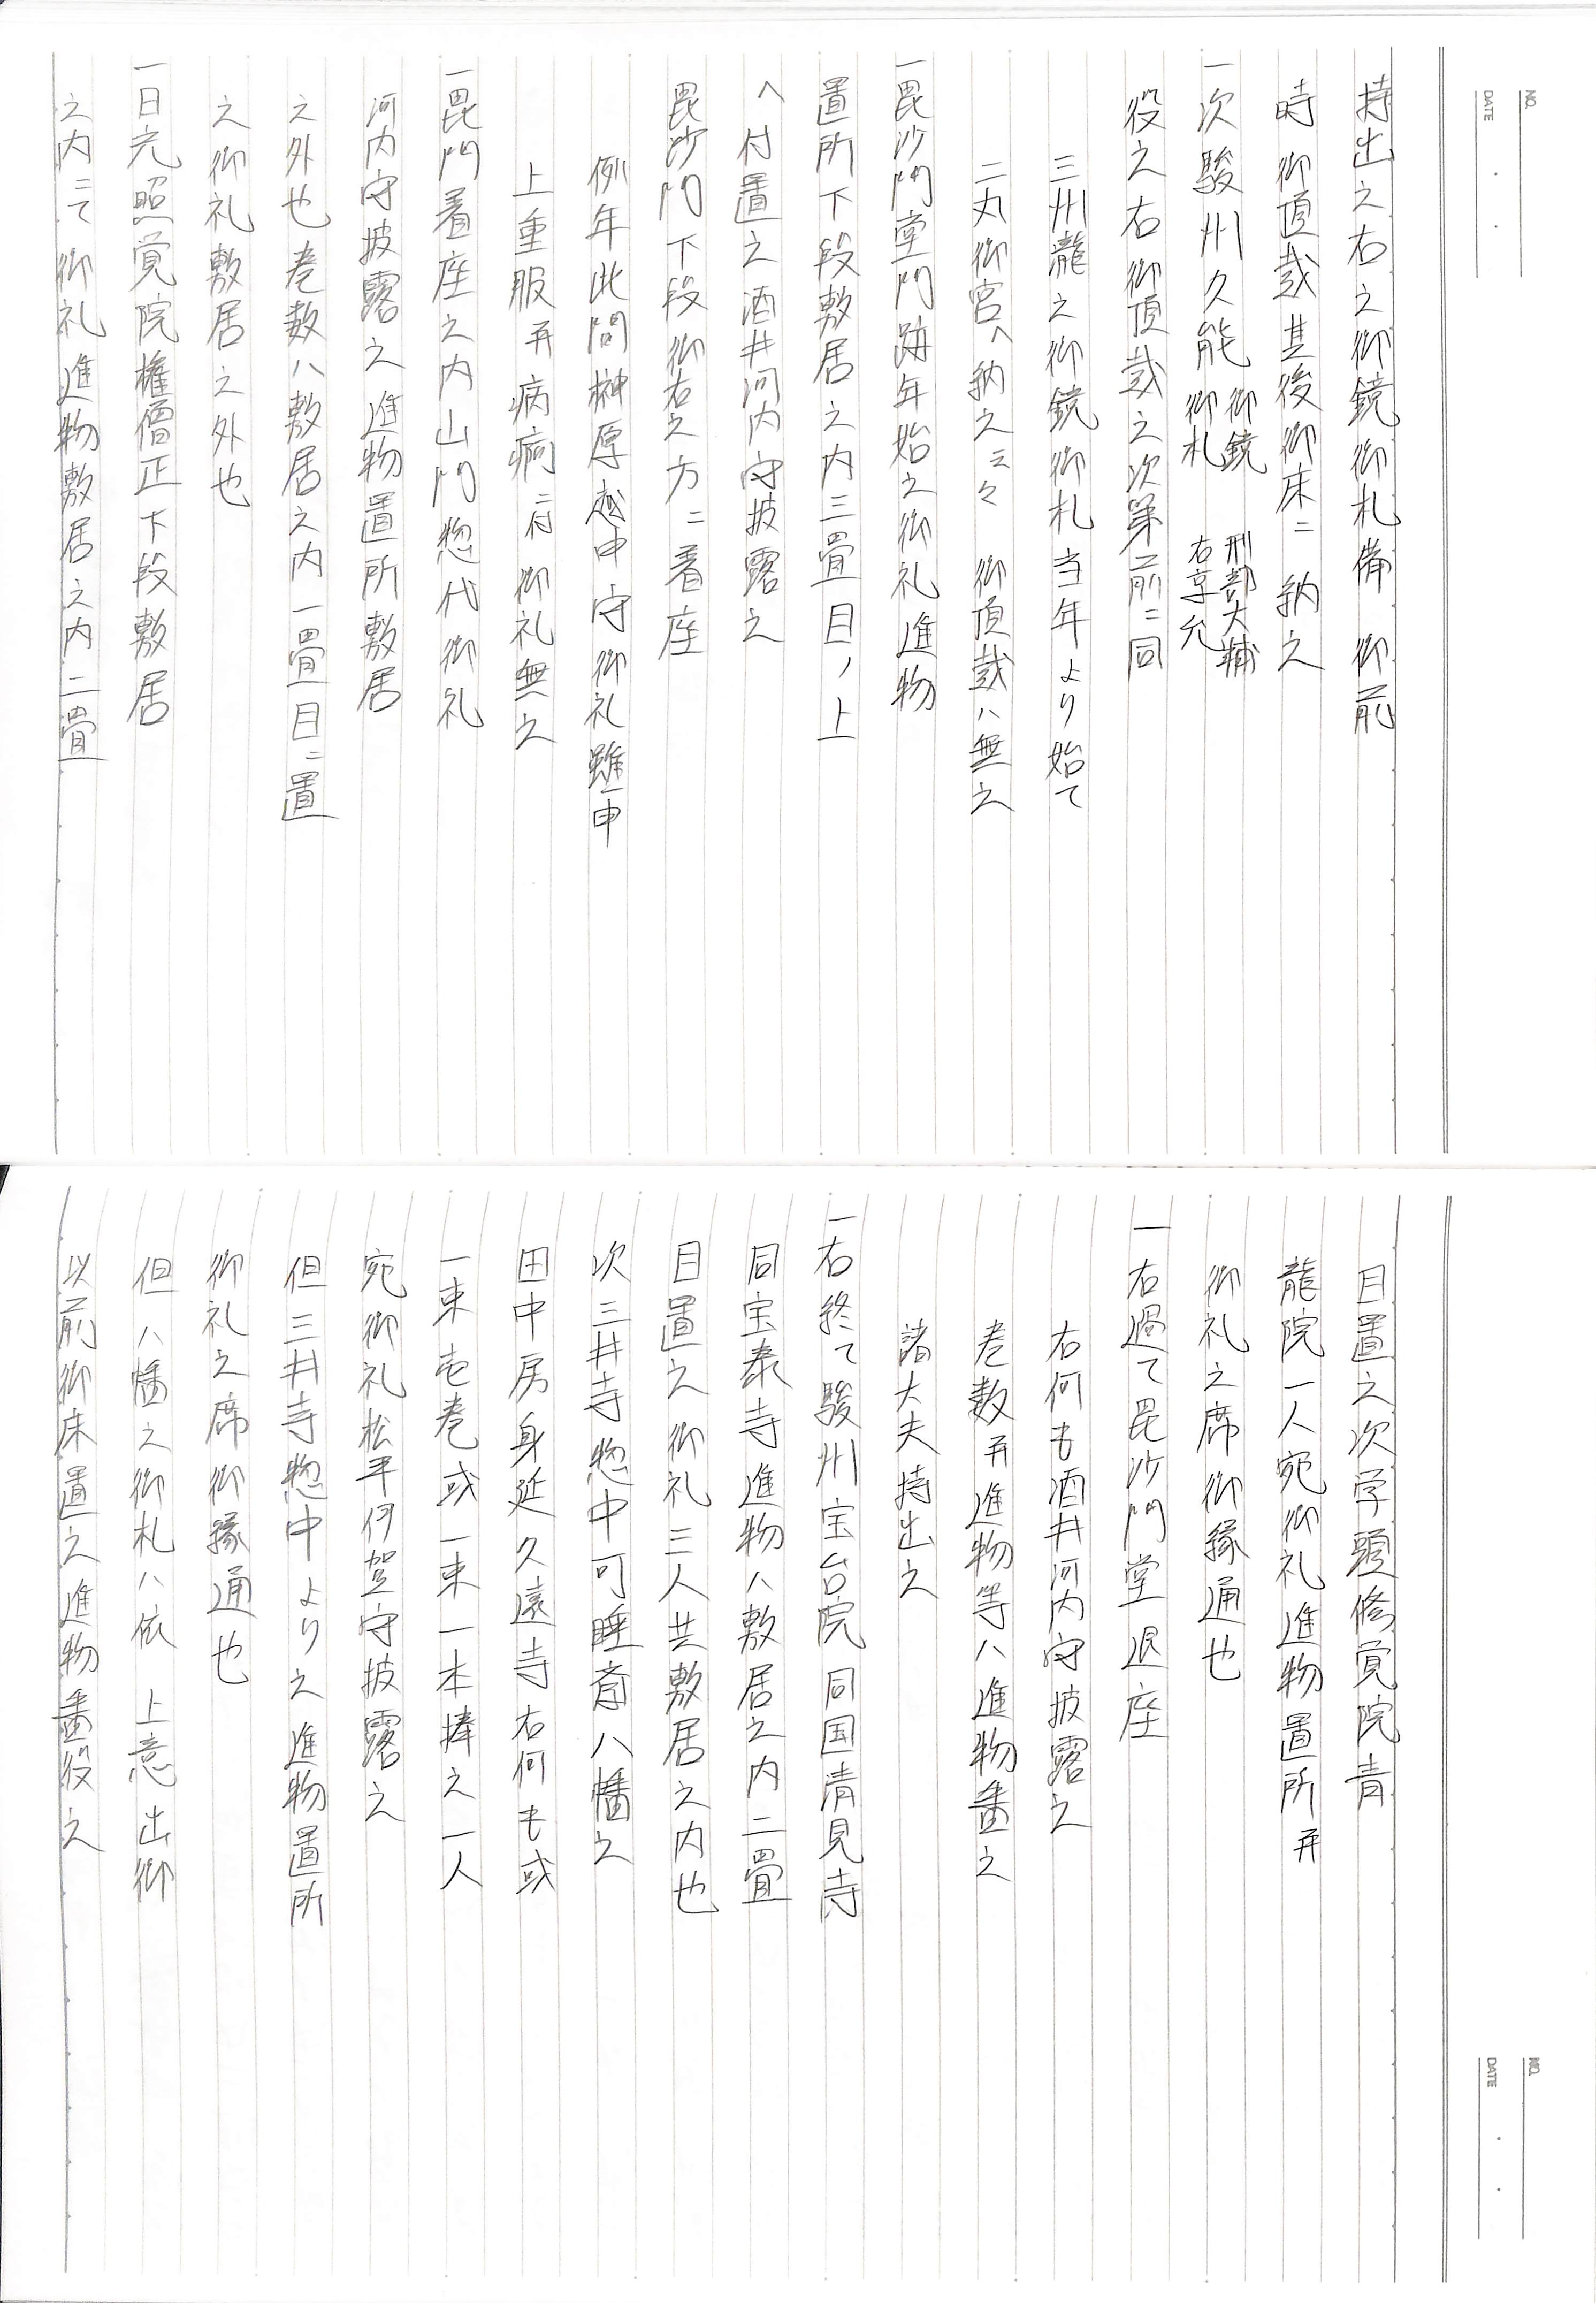 NO.
DATE
持出之右之御鏡御札備　御前
時　御頂戴其後御床ニ　納之
一次駿州久能　御鏡　御札　刑部大輔　右京允
役之右御頂戴之次第前ニ同
三州瀧之御鏡御札当年より始て
二丸御宮へ納之云々　御頂戴ハ無之
一毘沙門堂門跡年始之御礼進物
置所下段敷居之内三畳目ノ上
へ付置之酒井河内守披露之
毘沙門下段御右之方ニ着座
例年此間榊原越中守御礼雖申
上重服并病痾ニ付　御礼無之
一毘門着座之内山門惣代御礼
河内守披露之進物置所敷居
之外也巻数ハ敷居之内一畳目ニ置
之御礼敷居之外也
一日光照覚院権僧正下段敷居
之内ニて御礼進物敷居之内二畳
NO.
DATE
目置之次学頭修覚院青
龍院一人宛御礼進物置所并
御礼之席御縁通也
一右過て毘沙門堂退座
右何も酒井河内守披露之
巻数并進物等ハ進物番之
諸大夫持出之
一右終て駿州宝台院同国清見寺
同宝泰寺進物ハ敷居之内二畳
目置之御礼三人共敷居之内也
次三井寺惣中可睡斎八幡之
田中房身延久遠寺右何も或
一束壱巻或一束一本捧之一人
宛御礼松平伊賀守披露之
但三井寺惣中より之進物置所
御礼之席御縁通也
但八幡之御札ハ依　上意出御
以前御床置之進物番役之